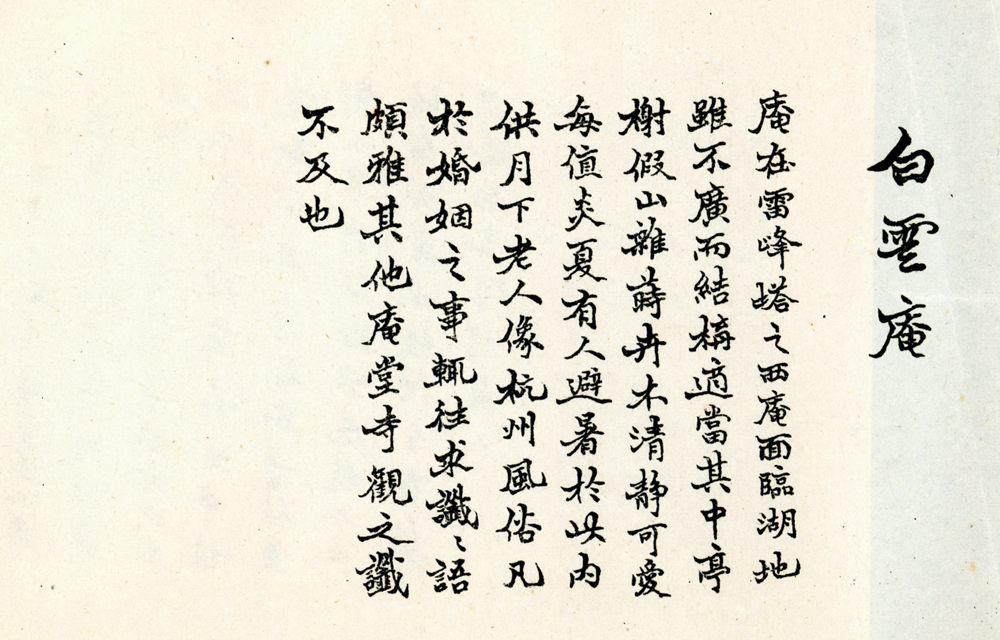 白雲庵
庵在雷峰塔之西庵面臨湖地
雖不廣而結構適當其中亭
榭假山雜蒔卉木清靜可愛
每值炎夏有人避暑於此内
供月下老人像杭州風俗凡
於婚姻之事輒往求讖〻語
頗雅其他庵堂寺觀之讖
不及也